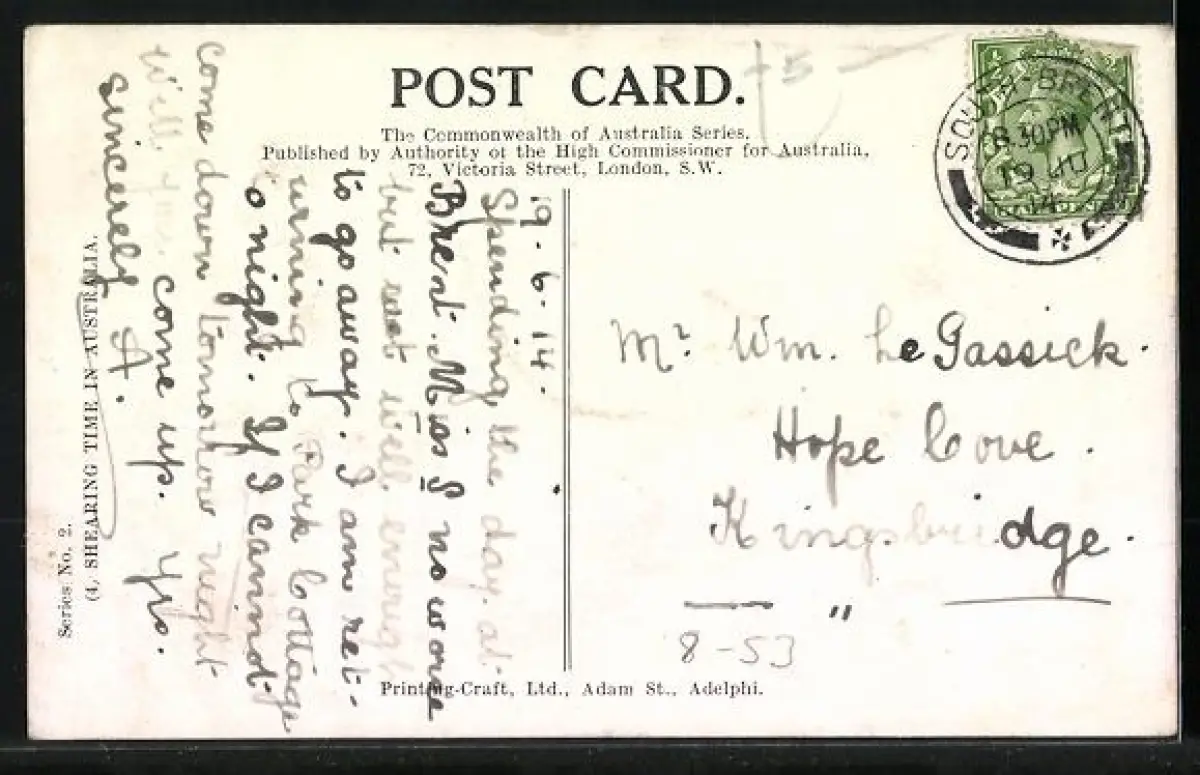 POST CARD.
The Commonwealth of Australia Series.
Published by Authority of the High Commissioner for Australia,
72, Victoria Street, London, S.W.
SOUTH-BRENT
8.30PM
19 JU
14
19.6.14.
Spending the day at
Brent. Miss S no worse
but not well enough
to go away. I am ret-
urning to Park Cottage
to night. If I cannot
come down tomorrow night
will you come up. Yrs.
sincerely A.
Mr. Wm. Le Gassick.
Hope Cove.
Kingsbridge.
— "
8-53
Series No. 2.
(4, SHEARING TIME IN AUSTRALIA.
Printing-Craft, Ltd., Adam St., Adelphi.